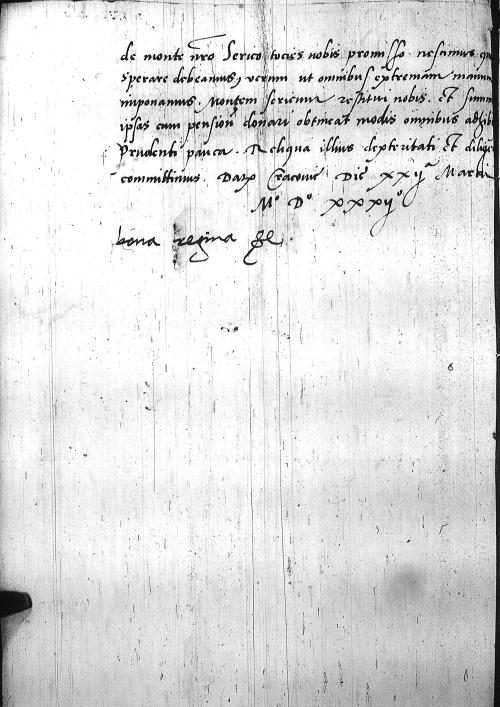 de monte nr̃o Serico tocies nobis promisso. nescimus qu
sperare debeamus, verum ut omnibus extremam manum
imponamus. Montem sericum restitui nobis. et summ
ipsas cum pension donari obtineat modis omnibus adhib
Prudenti pauca. Reliqua illius dexteritati Et dilige
committimus. Dat Cracovie Die xxij Martii
Mº Dº xxxijº
bona regina